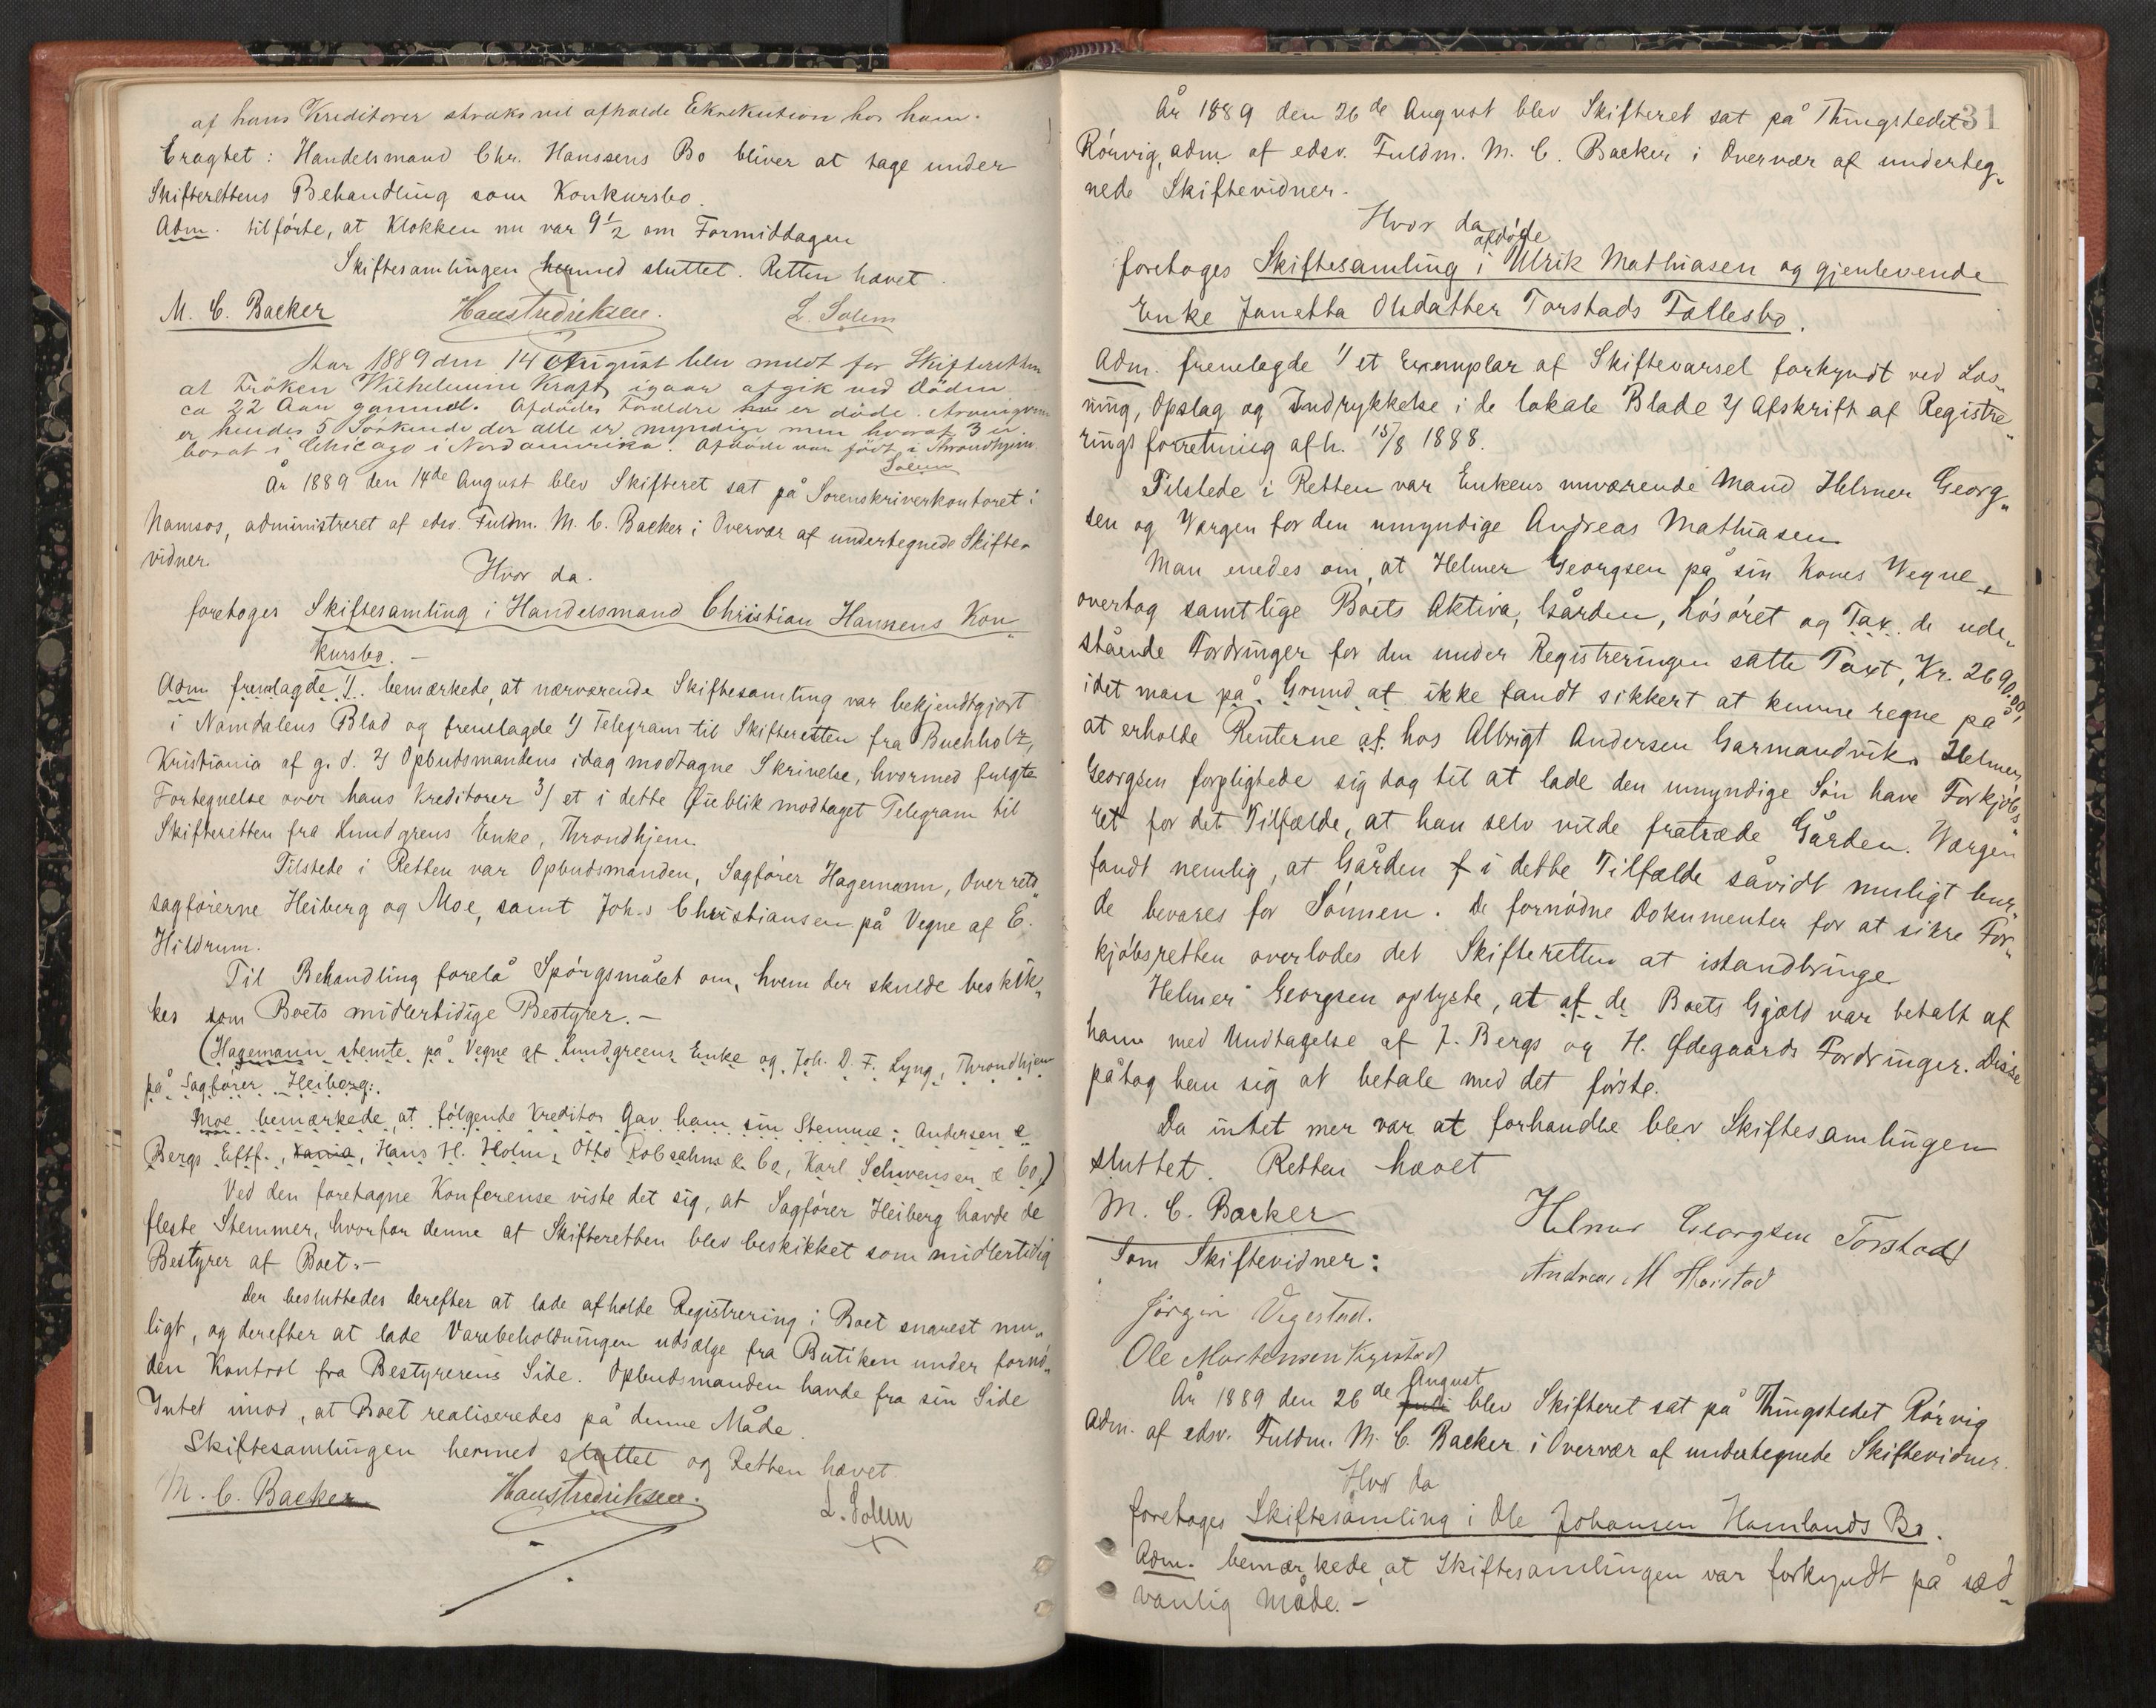 af hans Kreditorer straks vil afholde Eksekution hos ham.
Eragtet: Handelsmand Chr. Hanssens Bo bliver at tage under
Skifterettens Behandling som Konkursbo.
Adm. tilførte, at Klokken nu var 9 1/2 om Formiddagen
Skiftesamlingen hermed sluttet. Retten hævet.
M. C. Backer Hans Fredriksen. L. Solem
Aar 1889 den 14 August blev meldt for Skifteretten
at Frøken Vilhelmine Kraft igaar afgik ved døden
ca 22 Aar gammel. Afdødes Forældre er døde. Arvingerne
er hendes 5 Søskende der alle er myndige men hvoraf 3 er
bosat i Chicago i Nordamerika. Afdøde var født i Throndhjem.
Solem
År 1889 den 14de August blev Skifteret sat på Sorenskriverkontoret i
Namsos, administreret af edsv. Fuldm. M. C. Backer i Overvær af undertegnede Skifte-
vidner.
Hvor da.
foretoges Skiftesamling i Handelsmand Christian Hanssens Kon„
kursbo. —
Adm fremlagde 1/. bemærkede, at nærværende Skiftesamling var bekjendtgjort
i Namdalens Blad og fremlagde 1/ Telegram til Skifteretten fra Buchholz,
Kristiania af g. d. 2/ Opbudsmandens idag modtagne Skrivelse, hvormed fulgte
Fortegnelse over hans Kreditorer 3/ et i dette Øieblik modtaget Telegram til
Skifteretten fra Lundgrens Enke, Throndhjem.
Tilstede i Retten var Opbudsmanden, Sagfører Hagemann, Overrets„
sagførerne Heiberg og Moe, samt Johs Christiansen på Vegne af E.
Hildrum.
Til Behandling forelå Spørgsmålet om, hvem der skulde beskik„
kes som Boets midlertidige Bestyrer. —
(Hagemann stemte på Vegne af Lundgreens Enke og Joh. D. F. Lyng, Throndhjem
på Sagfører Heiberg:.
Moe bemærkede, at følgende Kreditor gav ham sin Stemme: Andersen &
Bergs Eftf., Hans H. Holm, Otto Robsahm & Co, Karl Schwensen & Co,)
Ved den foretagne Konferense viste det sig, at Sagfører Heiberg havde de
fleste Stemmer, hvorfor denne af Skifteretten blev beskikket som midlertidig
Bestyrer af Boet. —
Der besluttedes derefter at lade afholde Registrering i Boet snarest mu„
ligt, og derefter at lade Varebeholdningen udsælge fra Butiken under fornø„
den Kontrol fra Bestyrerens Side. Opbudsmanden havde fra sin Side
Intet imod, at Boet realiseredes på denne Måde.
Skiftesamlingen hermed sluttet og Retten hævet.
M. C. Backer Hans Fredriksen. L. Solem
31
År 1889 den 26de August blev Skifteret sat på Thingstedet
Rørvig, adm af edsv. Fuldm. M. C. Backer i Overvær af underteg„
nede Skiftevidner.
Hvor da
afdøde
foretoges Skiftesamling i Ulrik Mathiasen og gjenlevende
Enke Janetta Olsdatter Torstads Fællesbo.
Adm. fremlagde 1/ et Exemplar af Skiftevarsel forkyndt ved Læs„
ning, Opslag og Indrykkelse i de lokale Blade 2/ Afskrift af Registre„
ringsforretning afh. 15/8 1888.
Tilstede i Retten var Enkens nuværende Mand Helmer Georg„
sen og Værgen for den umyndige Andreas Mathiasen
Man enedes om, at Helmer Georgsen på sin Kones Vegne
overtog samtlige Boets Aktiva, Gården, Løsøret og Tax. de ude„
stående Fordringer for den under Registreringen satte Taxt, Kr. 2690.00,
idet man på Grund af ikke fandt sikkert at kunne regne på
at erholde Renterne af hos Albrigt Andersen Garmandvik. Helmer
Georgsen forpligtede sig dog til at lade den umyndige Søn have Forkjøbs„
ret for det Tilfælde, at han selv vilde fratræde Gården. Værgen
fandt nemlig, at Gården f i dette Tilfælde såvidt muligt bur„
de bevares for Sønnen. De fornødne Dokumenter for at sikre For„
kjøbsretten overlodes det Skifteretten at istandbringe
Helmer Georgsen oplyste, at af de Boets Gjæld var betalt af
ham med Undtagelse af J. Bergs og H. Ødegaards Fordringer. Disse
påtog han sig at betale med det første.
Da intet mer var at forhandle blev Skiftesamlingen
sluttet. Retten hævet
M. C. Backer Helmer Georgsen Torstad
Som Skiftevidner: Andreas M
Jørgin Vegestad.
Ole Mortensen
August
År 1889 den 26de blev Skifteret sat på Thingstedet Rørvig
Adm. af edsv. Fuldm. M. C. Backer i Overvær af undertegnede Skiftevidner.
Hvor da
foretoges Skiftesamling i Ole Johansen Hamlands Bo.
Adm. bemærkede, at Skiftesamlingen var forkyndt på sæd„
vanlig Måde. —